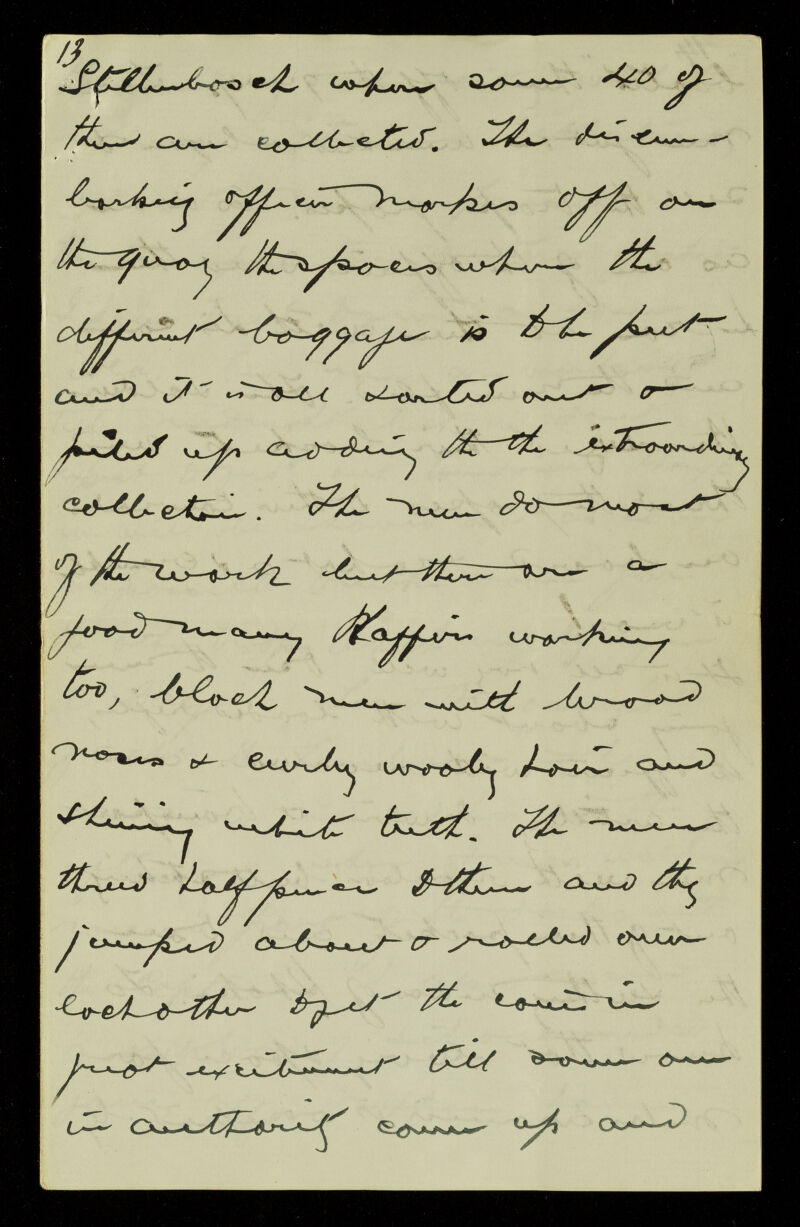 13
Stellenbosch where some 40 of
them are collected. The disem-
barking officer markes off on
the quay the spaces where the
different baggage is to be put
and it is all sorted out &
piled up adding to the extraordinary
collection. The men do most
of the work but there are a
good many Kaffirs working
too, black men with broad
noses & curly wooly hair and
shining white teeth. The men
threw halfpence to them and they
jumped about & rolled over
each other to get the coins in
great excitement till some one
in authority came up and